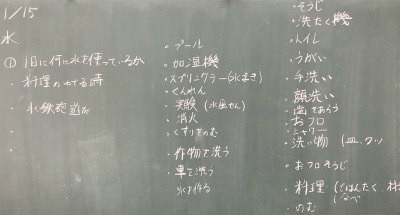 1/15
水
① 1日に何に水を使っているか
・料理のする時
・水鉄砲
・プール
・加湿機
・スプリンクラー(水まき)
・実験
・消火
・くすりをのむ
・作物を洗う
・車を洗う
氷を作る
・そうじ
・洗たく機
・トイレ
・うがい
・手洗い
・顔洗い
・歯をあらう
・おフロ
・シャワー
・洗い物(皿、クツ
・おフロそうじ
・料理(ごはんたく、
なべ
・のむ